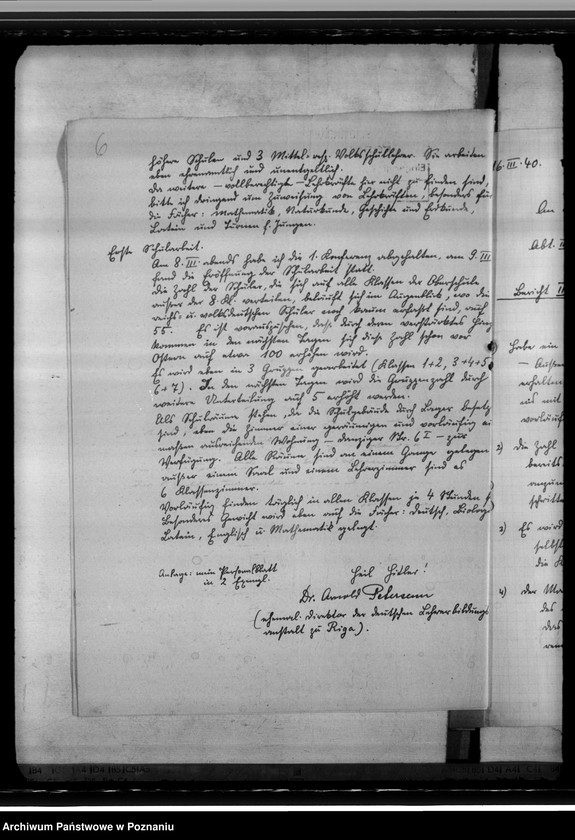 6
höhere Schulen und 3 Mittel- resp. Volksschullehrer. Sie arbeiten
eben ehrenamtlich und unentgeltlich.
Da weitere – vollberechtigte – Lehrkräfte hier nicht zu finden sind,
bitte ich dringend um Zuweisung von Lehrkräften, besonders für
die Fächer: Mathematik, Naturkunde, Geschichte und Erdkunde,
Latein und Turnen f. Jungen.
Erste Schularbeit.
Am 8. III abends habe ich die 1. Konferenz abgehalten, am 9. III
fand die Eröffnung der Schularbeit statt.
Die Zahl der Schüler, die sich auf alle Klassen der Oberschule
außer der 8. Kl. verteilen, beläuft sich im Augenblick, wo die
reichs- u. volksdeutschen Schüler noch kaum erfasst sind, auf
55. Es ist vorauszusehen, dass durch deren verstärktes
kommen in den nächsten Tagen sich diese Zahl schon vor
Ostern auf etwa 100 erhöhen wird.
Es wird eben in 3 Gruppen gearbeitet (Klassen 1+2, 3+4+5
6+7). In den nächsten Tagen wird die Gruppenzahl durch
weitere Unterteilung auf 5 erhöht werden.
Als Schulräume stehen, da die Schulgebäude durch Lager besetzt
sind, eben die Zimmer einer geräumigen und vorläufig ei
nachten ausreichenden Wohnung – Danziger Str. 6 I – zur
Verfügung. Alle Räume sind an einem Gange gelegen
außer einem Saal und einem Lehrerzimmer sind es
6 Klassenzimmer.
Vorläufig finden täglich in allen Klassen je 4 Stunden
Besonderes Gewicht wird eben auf die Fächer: Deutsch, Biologie
Latein, Englisch u. Mathematik gelegt.
Anlage: mein Personalblatt
in 2 Exempl.
Heil Hitler!
Dr. Arnold Petersenn
(ehemal. Direktor der deutschen Lehrerbildungs
anstalt zu Riga).
16. III. 40.
An
Abt. II
Bericht II
Habe ein
– Außer
erhalten
vorläuf
2) Die Zahl
bereits
schritte
3) Es wird
selbst
die K
4) Der
des
das
Archiwum Państwowe w Poznaniu